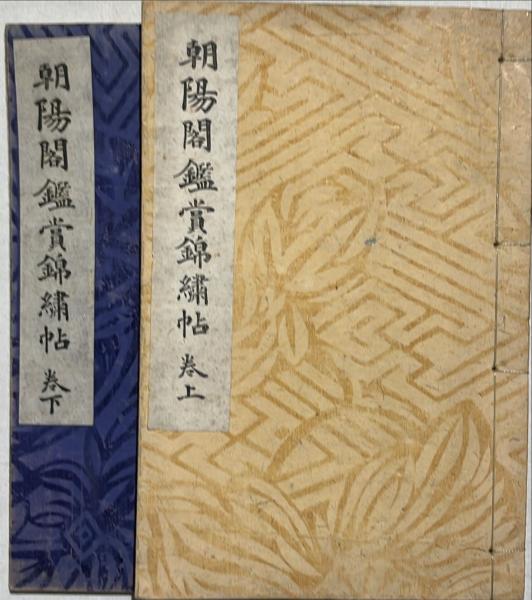 朝陽閣鑑賞錦繡帖 卷上
朝陽閣鑑賞錦繡帖 卷下